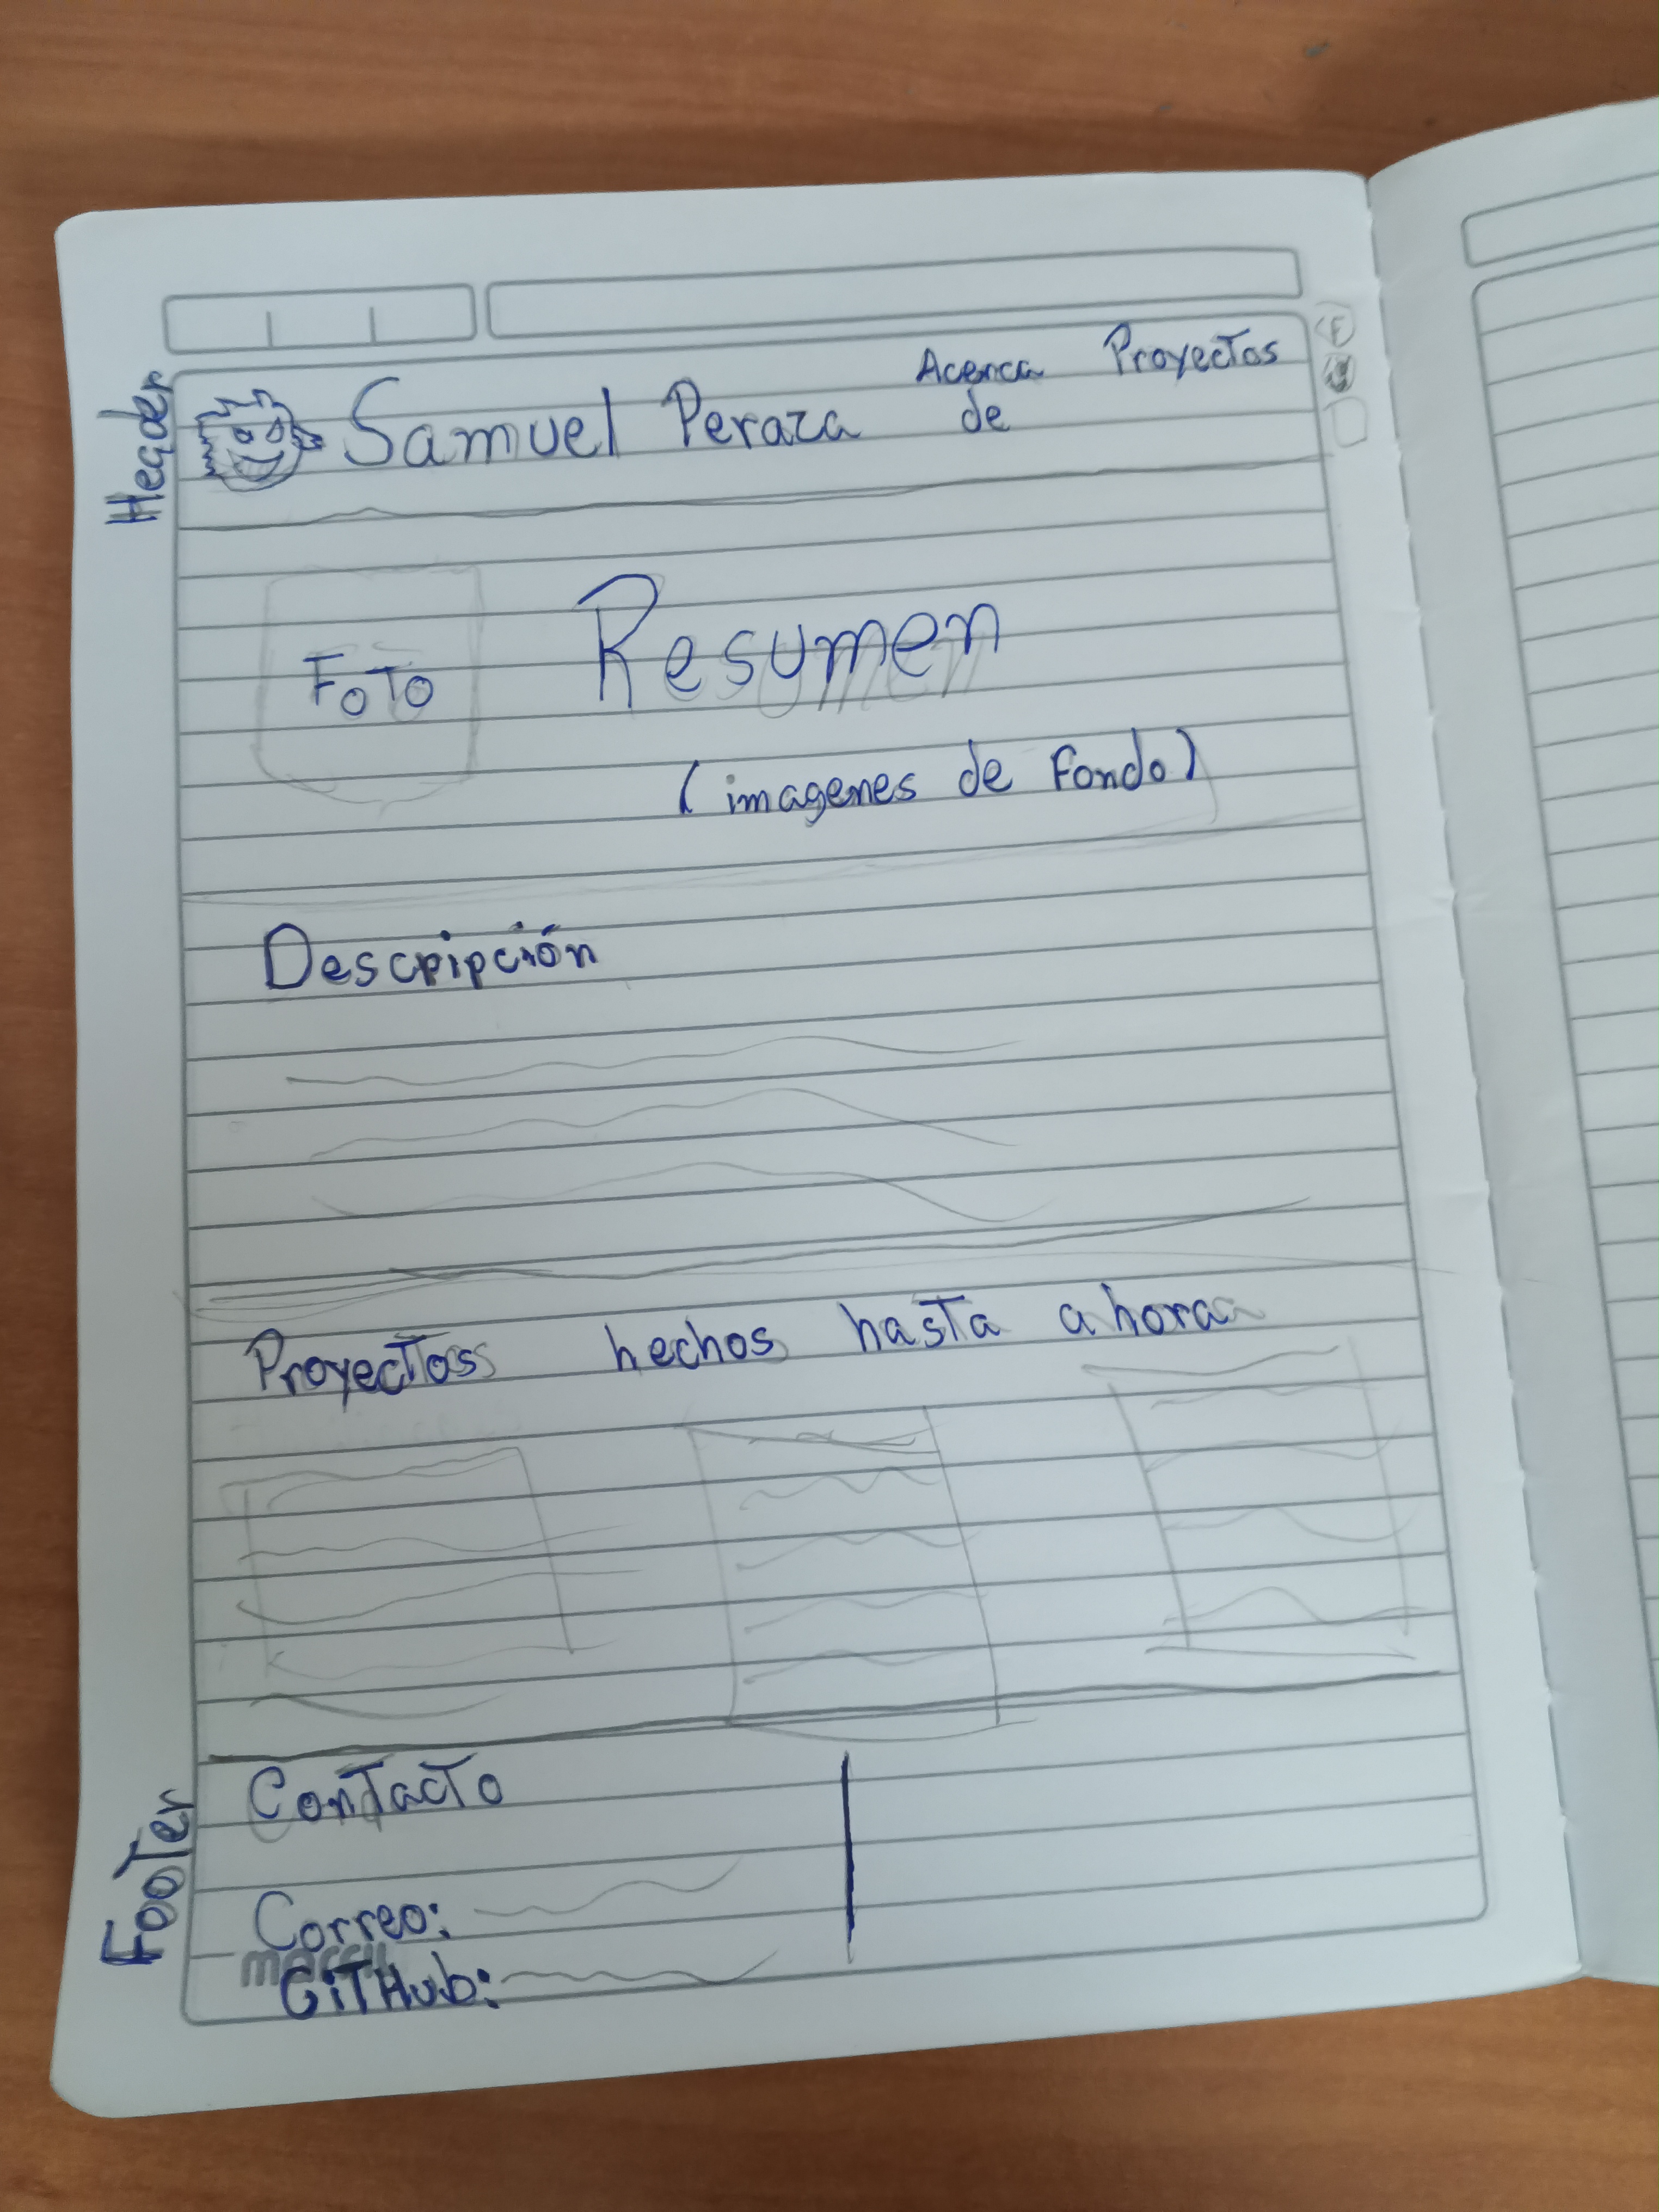 Header
Samuel Peraza
Acerca de
Proyectos
FOTO
Resumen
(imagenes de Fondo)
Descripción
Proyectos hechos hasta ahora
Footer
Contacto
Correo:
GiTHub: